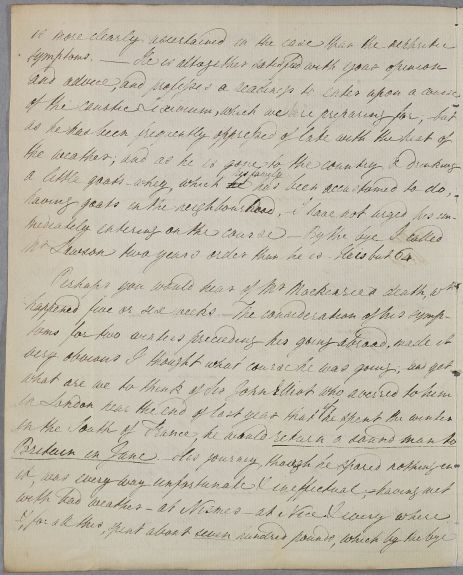 is more clearly ascertained in the case than the nephritic
symptoms. — He is altogether satisfied with your opinion
and advice, and professes a readiness to enter upon a course
of the caustic lixivium, which we are preparing for, but
as he has been frequently oppressed of late with the heat of
the weather, and as he is gone to the country & drinking
a little goats-whey, which his family has been accustomed to do,
having goats in the neighbourhood, I have not urged his im-
mediately entering on the course — By the bye I called
Mr Lawson two years older than he is – He is but 64
Perhaps you would hear of Mr Mackenzie's death, wch
happened five or six weeks – The consideration of his symp-
toms for two winters preceding his going abroad, made it
very obvious I thought what course he was going, and yet
what are we to think of Sir John Elliot who averred to him
in London near the end of last year that if he spent the winter
in the South of France, he would return a sound man to
Britain in June. His journey, though he spared nothing on
it, was every way unfortunate & ineffectual – having met
with bad weather – at Nismes – at Nice & every where
& for all this, spent about seven hundred pounds, which by the bye